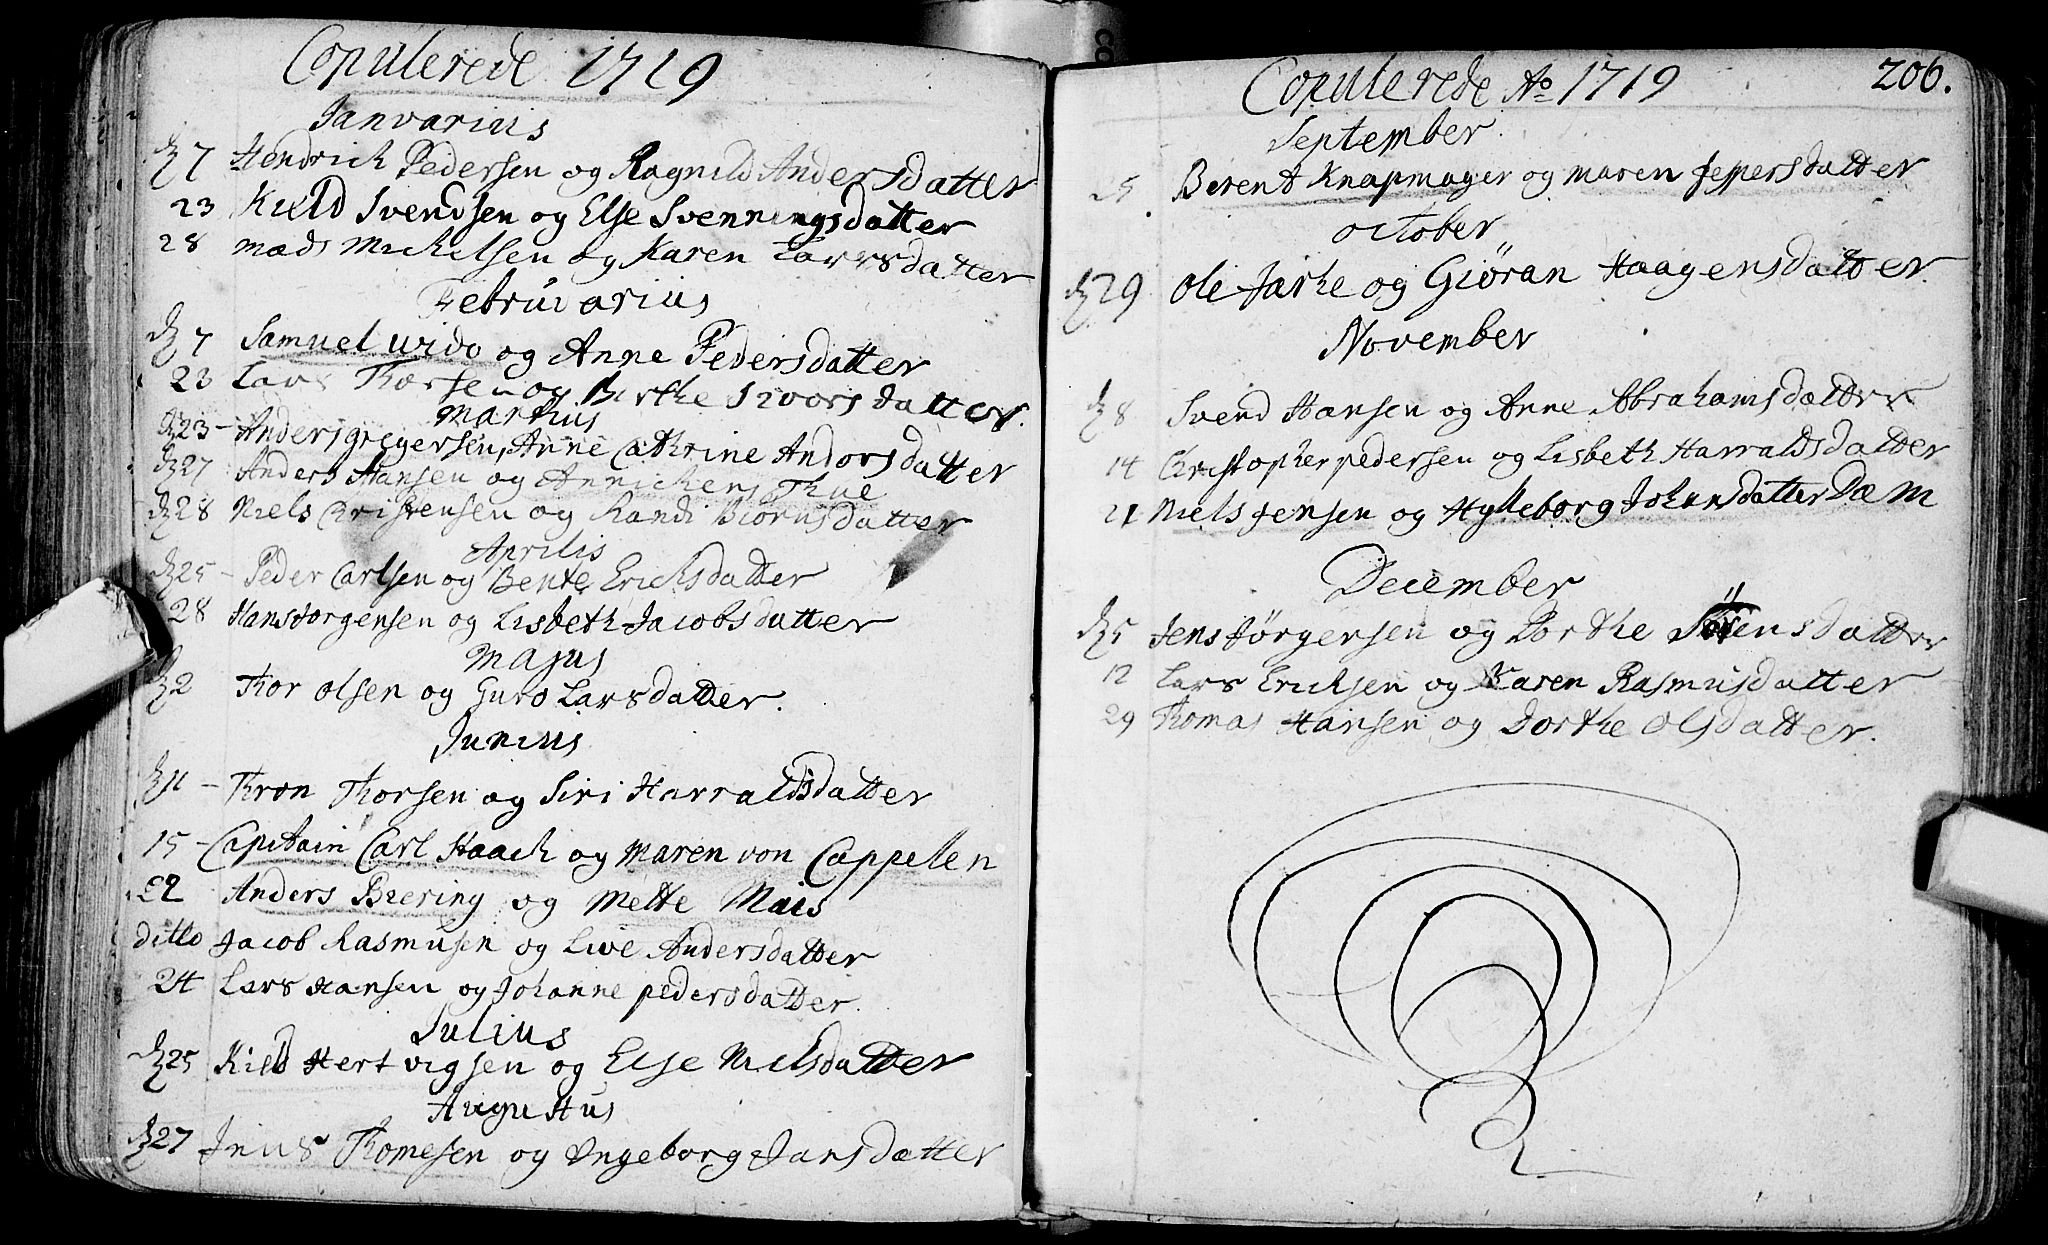 Copulerede 1719
Janvarius
dz 7 Hendrich Pedersen og Ragnild Andersdatter
23 Kield Svendsen og Else Svenningsdatter
28 mads Mickelsen og Karen Larsdatter
Februarius
dz 7 Samuel wido og Anne Pedersdatter
23 Lars Thorsen og Birthe Sivorsdatter
Martius
dz 23 - Anders gregersen, Anne Cathrine Andorsdatter
dz 27 Anders Hansen og Annichen Thue
dz 28 Niels Christensen og Randi Biørnsdatter
Aprilis
dz 25 - Peder Carlsen og Bente Ericksdatter
28 Hans Jorgensen og Lisbeth Jacobsdatter
Majus
dz 2 Thor olsen og Guro Larsdatter.
Junius
dz 11 - Thron Thorsen og Siri Harraldsdatter
15 - Capitain Carl Haack og Maren von Cappelen
22 Anders Biering og Mette Mais
ditto Jacob Rasmusen og Live Andersdatter
24 Lars Hansen og Johanne pedersdatter.
Julius
dz 25 Kield Hertvigsen og Else Nielsdatter
Augustus
dz 27 Thomesen og Ingeborg Jansdatter
206.
Copulerede Ao 1719
September.
25. Berent Knapmager og maren Jeppersdatter
october
dz 29 ole Jarke og Giøran Haagensdatter.
November
dz 8 Svend Hansen og Anne Abrahamsdatter
14 Christopher pedersen og Lisbeth Harraldsdatter
21 Niels Jensen og Hylleborg Johansdatter Dæm
December
dz 5 Jens Jörgensen og Dorthe Sörensdatter
12 Lars Ericksen og Karen Rasmusdatter
29 Thomas Hansen og Dorthe olsdatter.